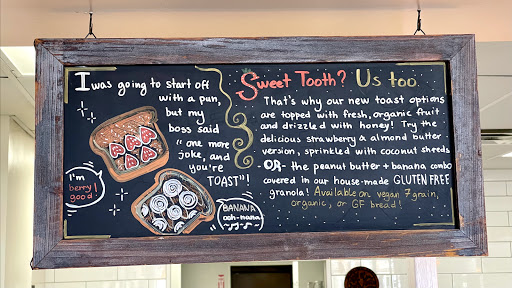 I was going to start off
with a pun,
but my
boss said
"one more
joke, and
you're
TOAST"!
I'm
berry
good
BANANA
ooh-nana
Sweet Tooth? Us too.
That's why our new toast options
are topped with fresh, organic fruit
and drizzled with honey! Try the
delicious strawberry & almond butter
version, sprinkled with coconut shreds
-OR- the peanut butter + banana combo
covered in our house-made GLUTEN FREE
granola! Available on vegan 7 grain,
organic, or GF bread!